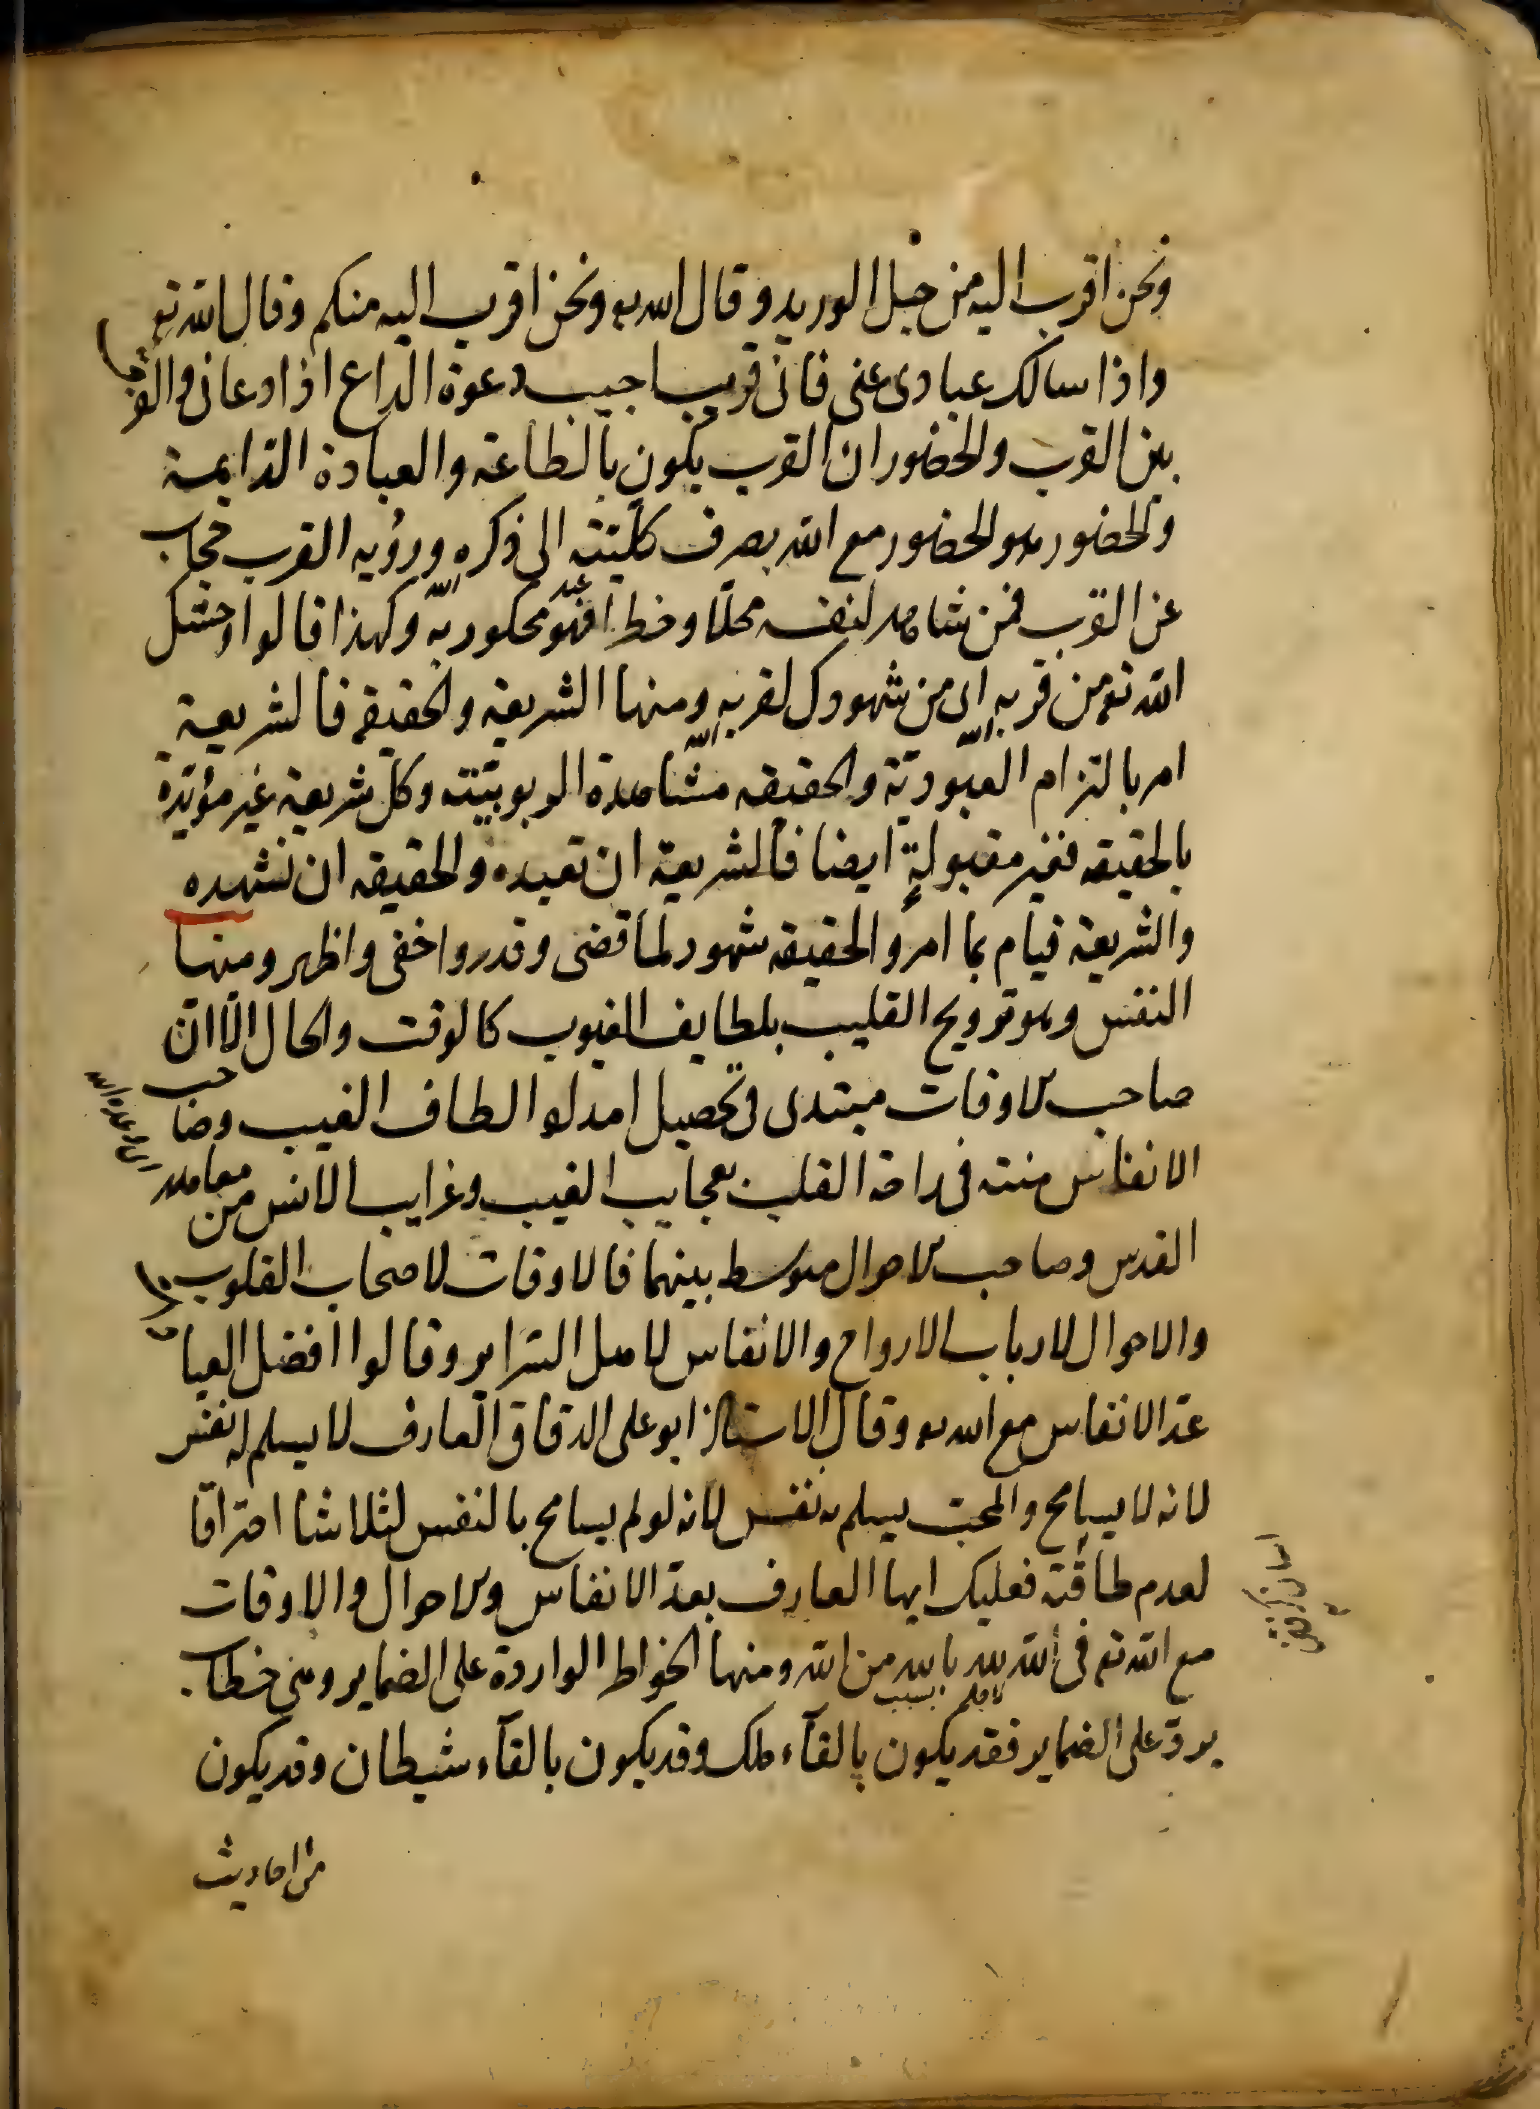 ونحن اقرب اليه من حبل الوريد وقال الله تع ونحن اقرب اليه منكم وقال الله تع
واذا سالك عبادى عنى فانى قريب اجيب دعوة الداع اذا دعان والفرق
بين القرب والحضور ان القرب يكون بالطاعة والعبادة الدايمة
والحضور هو الحضور مع الله بصرف كليته الى ذكره ورؤيه القرب حجاب
عن القرب فمن شاهد لنفسه محلا وخطرا فهو ممكور به ولهذا قالوا اوحشك
الله تع من قربه اى من شهودك لقربه ومنها الشريعة والحقيقة فالشريعة
امر بالتزام العبودية والحقيقه مشاهدة الربوبيته وكل شريعة غير مؤيدة
بالحقيقه فغير مقبولة ايضا فالشريعة ان تعبده والحقيقه ان تشهده
والشريعة قيام بما امر والحقيقه شهود لما قضى وقدر واخفى واظهر ومنها
النفس وهو ترويح القليب بلطايف الغيوب كالوقت والحال الا ان
صاحب الاوقات مبتدى فى تحصيل الطاف الغيب وصاحب
الانفاس منته فى راحة القلب بعجايب الغيب وغرايب الانس من معامله
القدس وصاحب الاحوال متوسط بينهما فالاوقات لاصحاب القلوب
والاحوال لارباب الارواح والانفاس لاهل السراير وقالوا افضل العبادات
عد الانفاس مع الله تع وقال الاستاذ ابو على الدقاق العارف لا يسلم له نفس
لانه لا يسامح والمحب يسلم له نفس لانه لو لم يسامح بالنفس لتلاشا احتراقا
لعدم طاقته فعليك ايها العارف بعد الانفاس والاحوال والاوقات
مع الله تع فى الله لله بالله من الله ومنها الخواطر الواردة على الضماير وهى خطاب
يرد على الضماير فقد يكون بالقآء ملك وقد يكون بالقآء شيطان وقد يكون
من احاديث